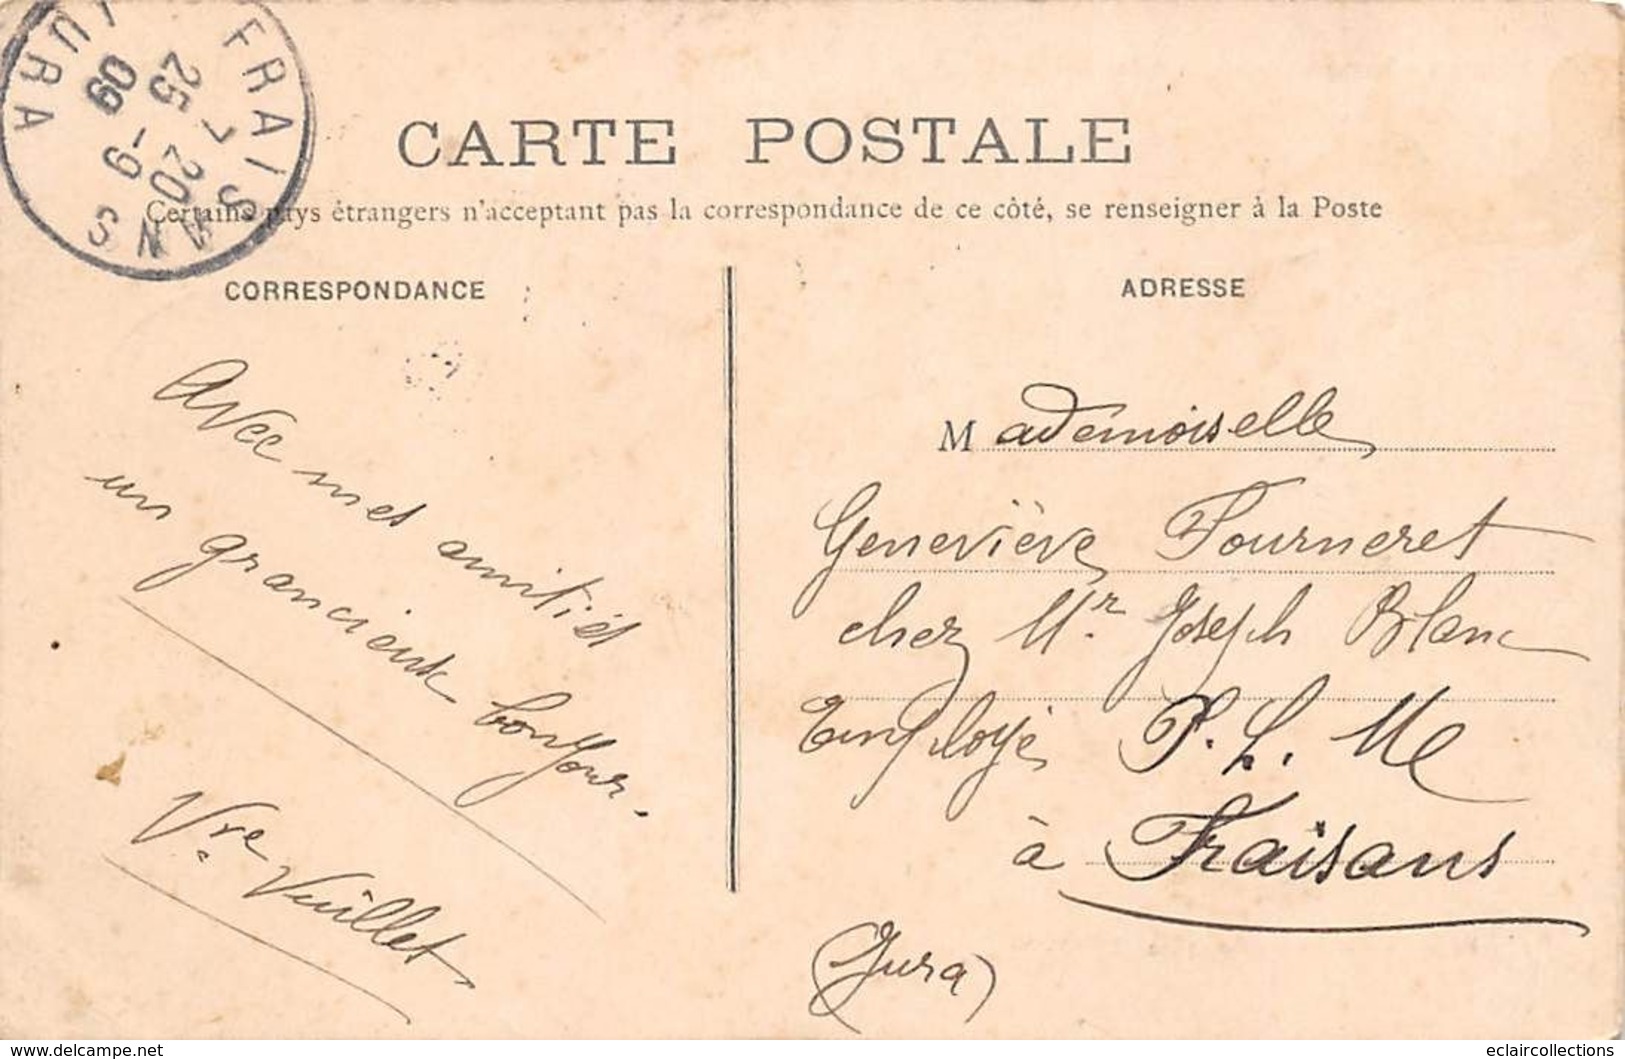 FRAISANS
JURA
25 - 9
7 20
09
CARTE POSTALE
Certains pays étrangers n'acceptant pas la correspondance de ce côté, se renseigner à la Poste
CORRESPONDANCE
Avec mes amitiés
un grancieux bonjour.
Vre Vuillet
ADRESSE
Mademoiselle
Geneviève Fourneret
chez Mr. Joseph Blanc
Employé P. L. Me
à Fraisans
(Jura)
www.delcampe.net
eclaircollections